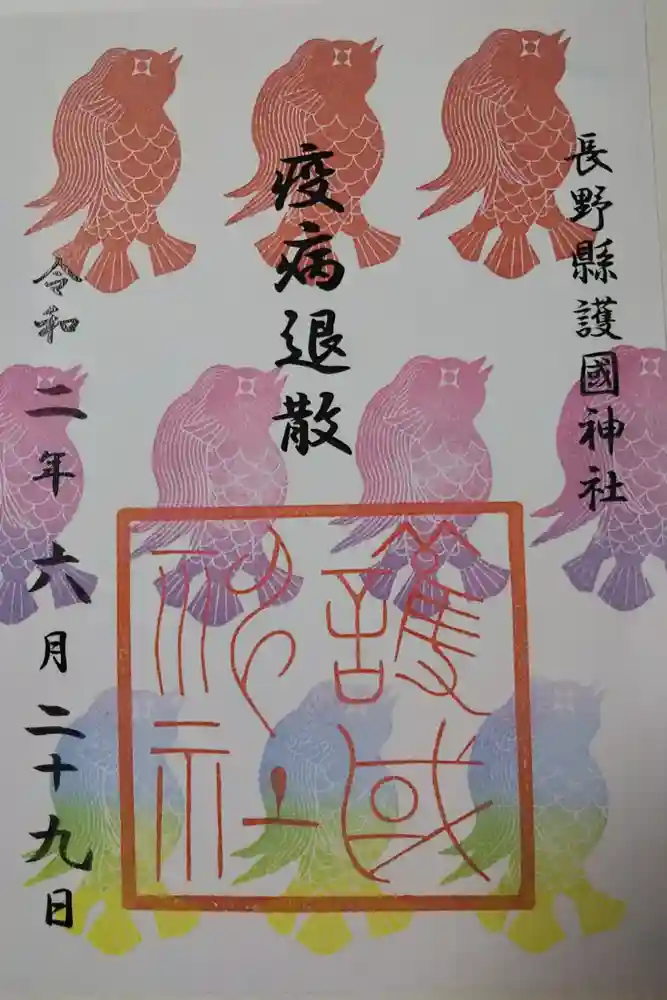 長野縣護國神社
疫病退散
護國神社
令和二年六月二十九日